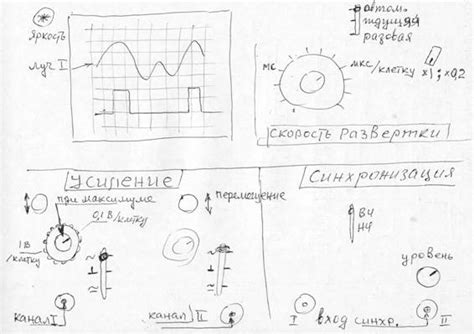 автом
ждущая
разовая
яркость
луч I
мс
мкс/клетку
х1; х0,2
скорость развертки
Усиление
Синхронизация
при максимуме
перемещение
0,1 В/клетку
1 В
/клетку
ВЧ
НЧ
уровень
канал I
канал II
I вход синхр. II